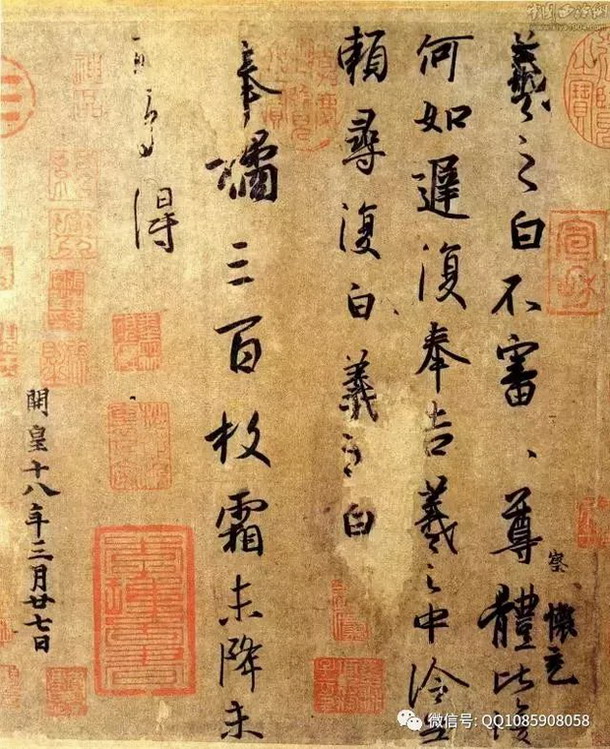 察懷充
羲之白不審、尊體比復
何如遲復奉告羲之中冷無
賴尋復白羲之白
奉橘三百枚霜未降未
可多得
開皇十八年三月廿七日
宣和
微信号: QQ1085908058